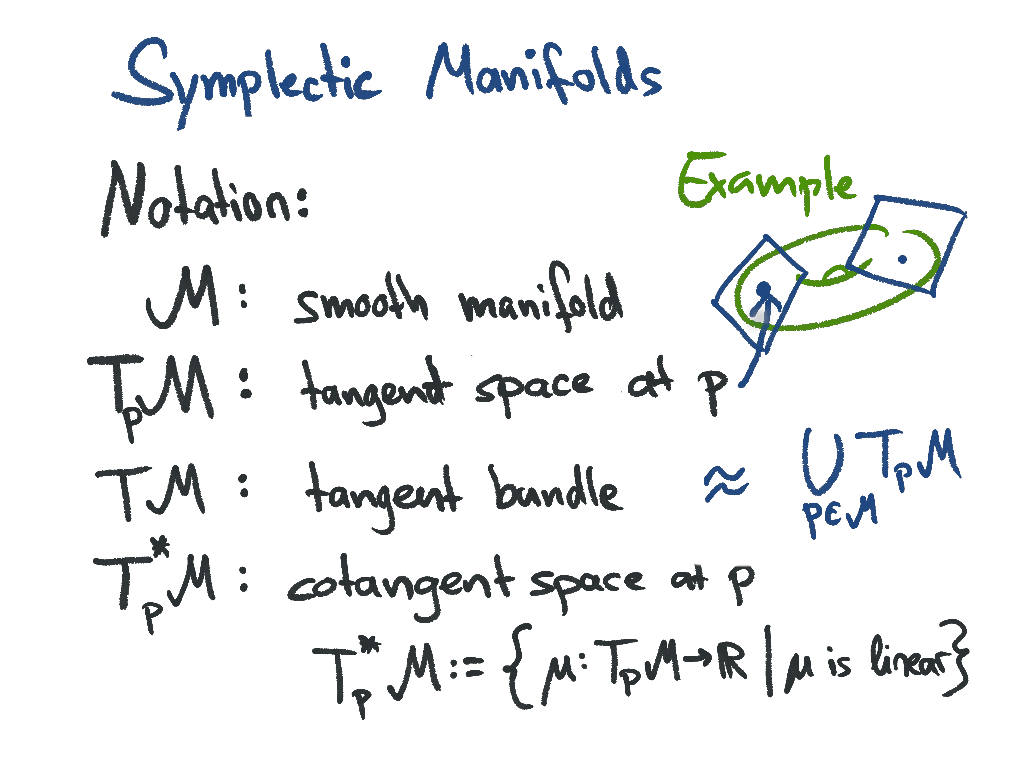 Symplectic Manifolds
Notation:
Example
M : smooth manifold
TₚM : tangent space at p
TM : tangent bundle ≈ ⋃ TₚM
p∈M
Tₚ*M : cotangent space at p
Tₚ*M := { μ: TₚM → ℝ | μ is linear }